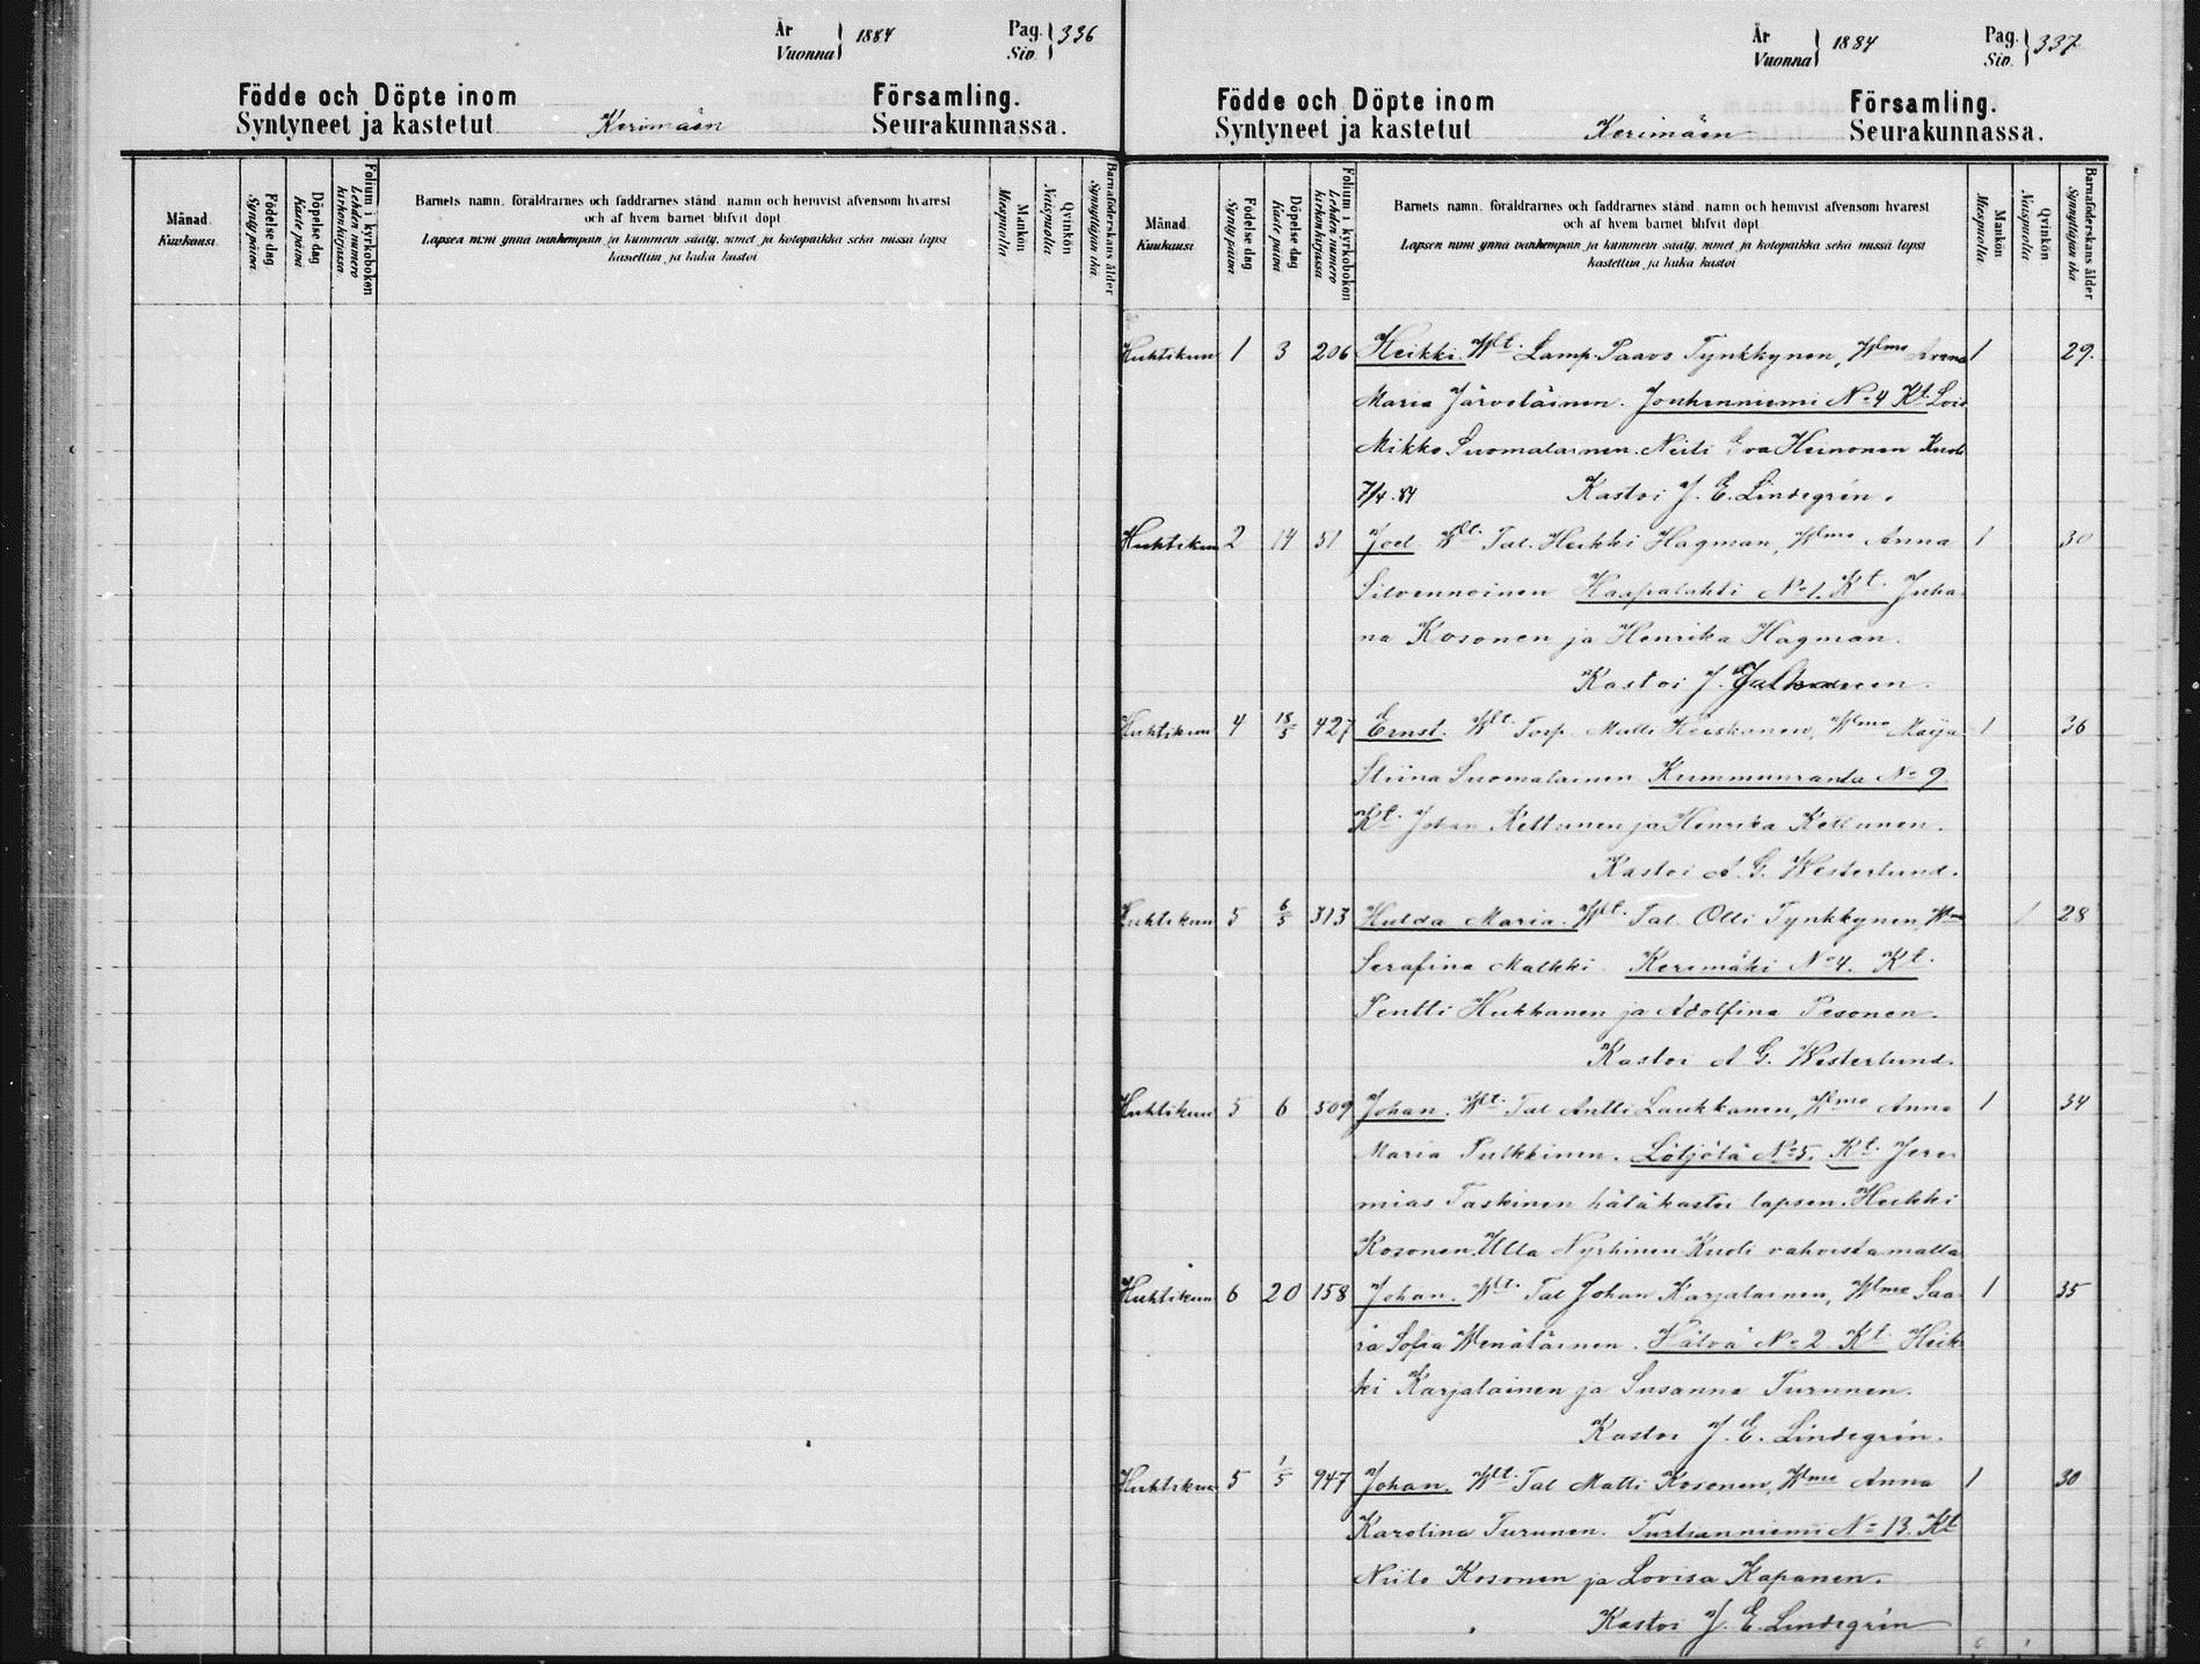 År
Vuonna } 1884
Pag.
Siv. } 336
Födde och Döpte inom Församling.
Syntyneet ja kastetut Kerimäen Seurakunnassa.
Månad
Kuukausi
Födelse dag
Synty päivä
Döpelse dag
Kaste päivä
Folium i kyrkoboken
Lehden numero
kirkonkirjassa
Barnets namn, föräldrarnes och faddrarnes stånd, namn och hemvist äfvensom hvarest
och af hvem barnet blifvit döpt
Lapsen nimi ynnä vanhempain ja kummein sääty, nimet ja kotopaikka sekä missä lapsi
kastettiin ja kuka kastoi
Mankön
Miespuolia
Qvinkön
Naispuolia
Barnaföderskans ålder
Synnyttäjän ikä
År
Vuonna } 1884
Pag.
Siv. } 337
Födde och Döpte inom Församling.
Syntyneet ja kastetut Kerimäen Seurakunnassa.
Månad
Kuukausi
Födelse dag
Synty päivä
Döpelse dag
Kaste päivä
Folium i kyrkoboken
Lehden numero
kirkonkirjassa
Barnets namn, föräldrarnes och faddrarnes stånd, namn och hemvist äfvensom hvarest
och af hvem barnet blifvit döpt
Lapsen nimi ynnä vanhempain ja kummein sääty, nimet ja kotopaikka sekä missä lapsi
kastettiin ja kuka kastoi
Mankön
Miespuolia
Qvinkön
Naispuolia
Barnaföderskans ålder
Synnyttäjän ikä
Huhtikuu 1 3 206 Heikki. Wlt. Lamp. Paavo Tynkkynen, Wlmo Anna 1 29.
Maria Järveläinen. Jouhenniemi No 4 Kt. Lois
Mikko Suomalainen. Neiti Eva Heinonen Kuoli
7/4.84 Kastoi J. E. Lindegrén.
Huhtikuu 2 14 51 Joel Wlt. Tal. Heikki Hagman, Wlmo Anna 1 30
Silvennoinen Haapalahti No 1. Kt. Juha
na Kosonen ja Henrika Hagman.
Kastoi J.
Huhtikuu 4 18/5 427 Ernst. Wlt. Torp. Matti Heiskanen, Wlmo Maija 1 36
Stiina Suomalainen Kummunranta No 9
Kt. Johan Kettunen ja Henrika Kettunen.
Kastoi A. G. Westerlund.
Huhtikuu 5 6/5 313 Hulda Maria. Wlt. Tal. Olli Tynkkynen, Wmo 1 28
Serafina Malkki Kerimäki No 4. Kt.
Pentti Hukkanen ja Adolfina Pesonen.
Kastoi A G. Westerlund.
Huhtikuu 5 6 509 Johan. Wlt. Tal Antti Laukkanen, Wlmo Anna 1 34
Maria Pulkkinen. Lötjölä No 5. Kt. Jere
mias Taskinen hätäkastoi lapsen. Heikki
Kosonen. Ulla Nyrhinen Kuoli vahvistamatta
Huhtikuu 6 20 158 Johan. Wlt. Tal Johan Karjalainen, Wlmo Saa 1 35
ra Sofia Wenäläinen. Hälvä No 2 Kt. Heik
ki Karjalainen ja Susanna Turunen.
Kastoi J. E. Lindegrén.
Huhtikuu 5 1/5 947 Johan. Wlt. Tal Matti Kosonen, Wlmo Anna 1 30
Karolina Turunen. Turtianniemi No 13. Kt
Niilo Kosonen ja Lovisa Kapanen.
Kastoi J. E. Lindegrén